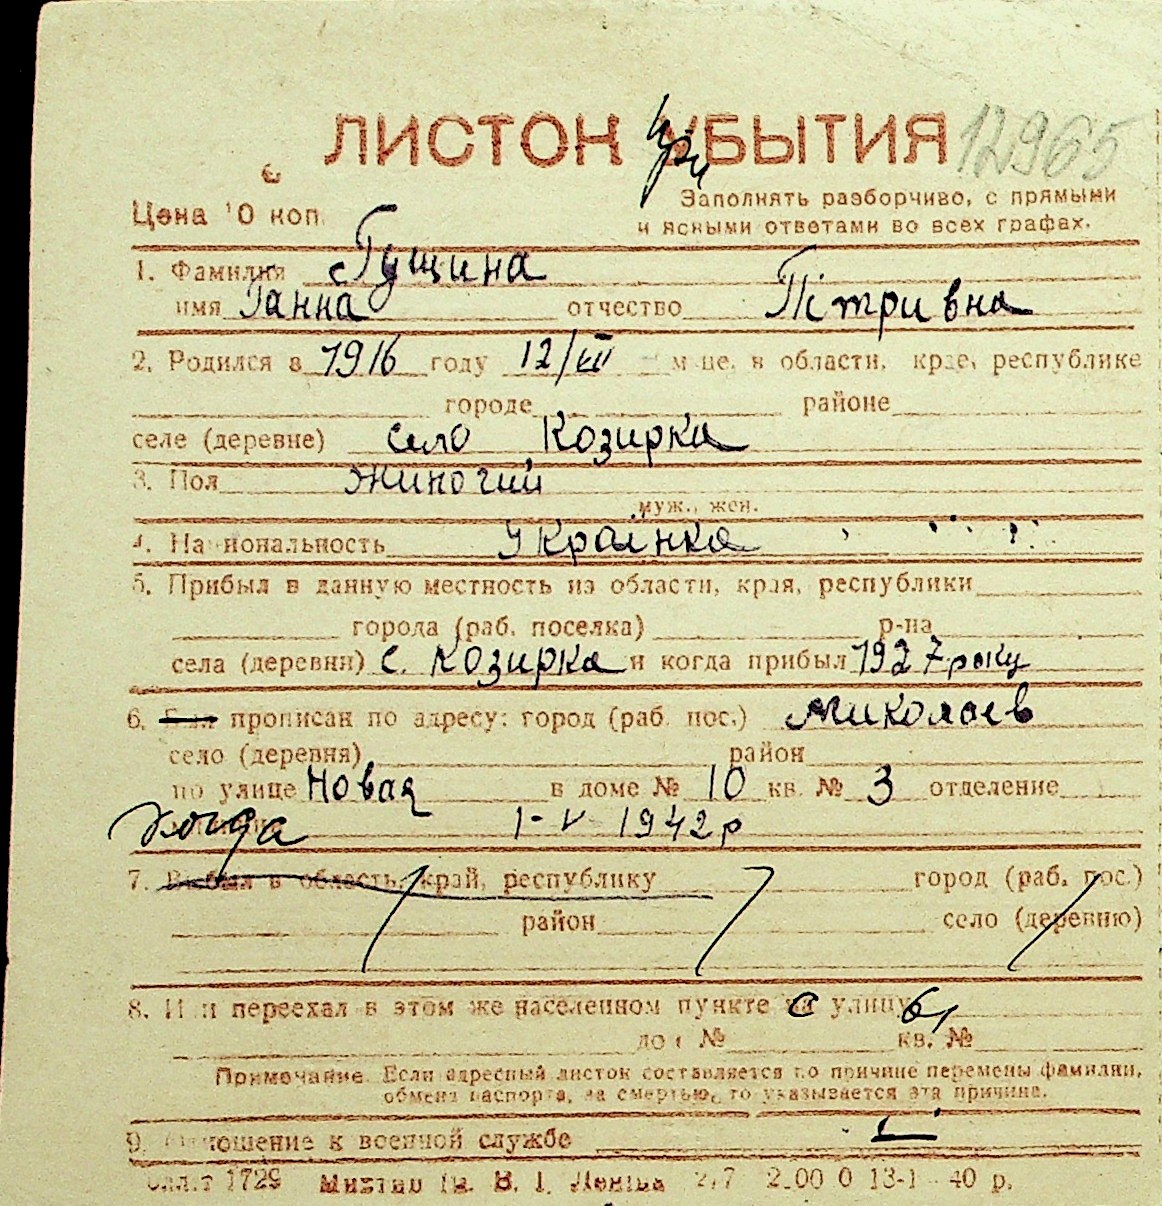 ЛИСТОК УБЫТИЯ При 12965
Цена 10 коп. Заполнять разборчиво, с прямыми
и ясными ответами во всех графах.
1. Фамилия Гущина
имя Ганна отчество Пітривна
2. Родился в 1916 году 12/VII м-це, в области, крае, республике
городе районе
селе (деревне) село Козирка
3. Пол жиночий
муж., жен.
4. Национальность Українка
5. Прибыл в данную местность из области, края, республики
города (раб. поселка) р-на
села (деревни) с. Козирка и когда прибыл 1927 року
6. прописан по адресу: город (раб. пос.) Миколаев
село (деревня) район
по улице Новая в доме № 10 кв. № 3 отделение
Когда 1-V 1942 р
7. Выбыл в область, край, республику город (раб. пос.)
район село (деревню)
8. Или переехал в этом же населенном пункте с улицы
дом № кв. №
Примечание. Если адресный листок составляется по причине перемены фамилии,
обмена паспорта, за смертью, то указывается эта причина.
9. Отношение к военной службе
1729 В. І. Леніна 2.00 0 13-1 40 р.